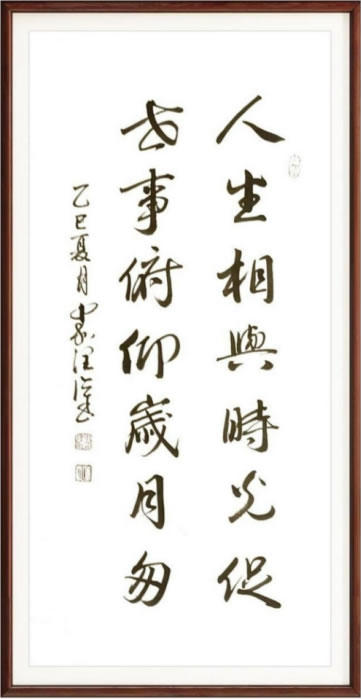 人生相與時光促
世事俯仰歲月匆
乙巳夏月